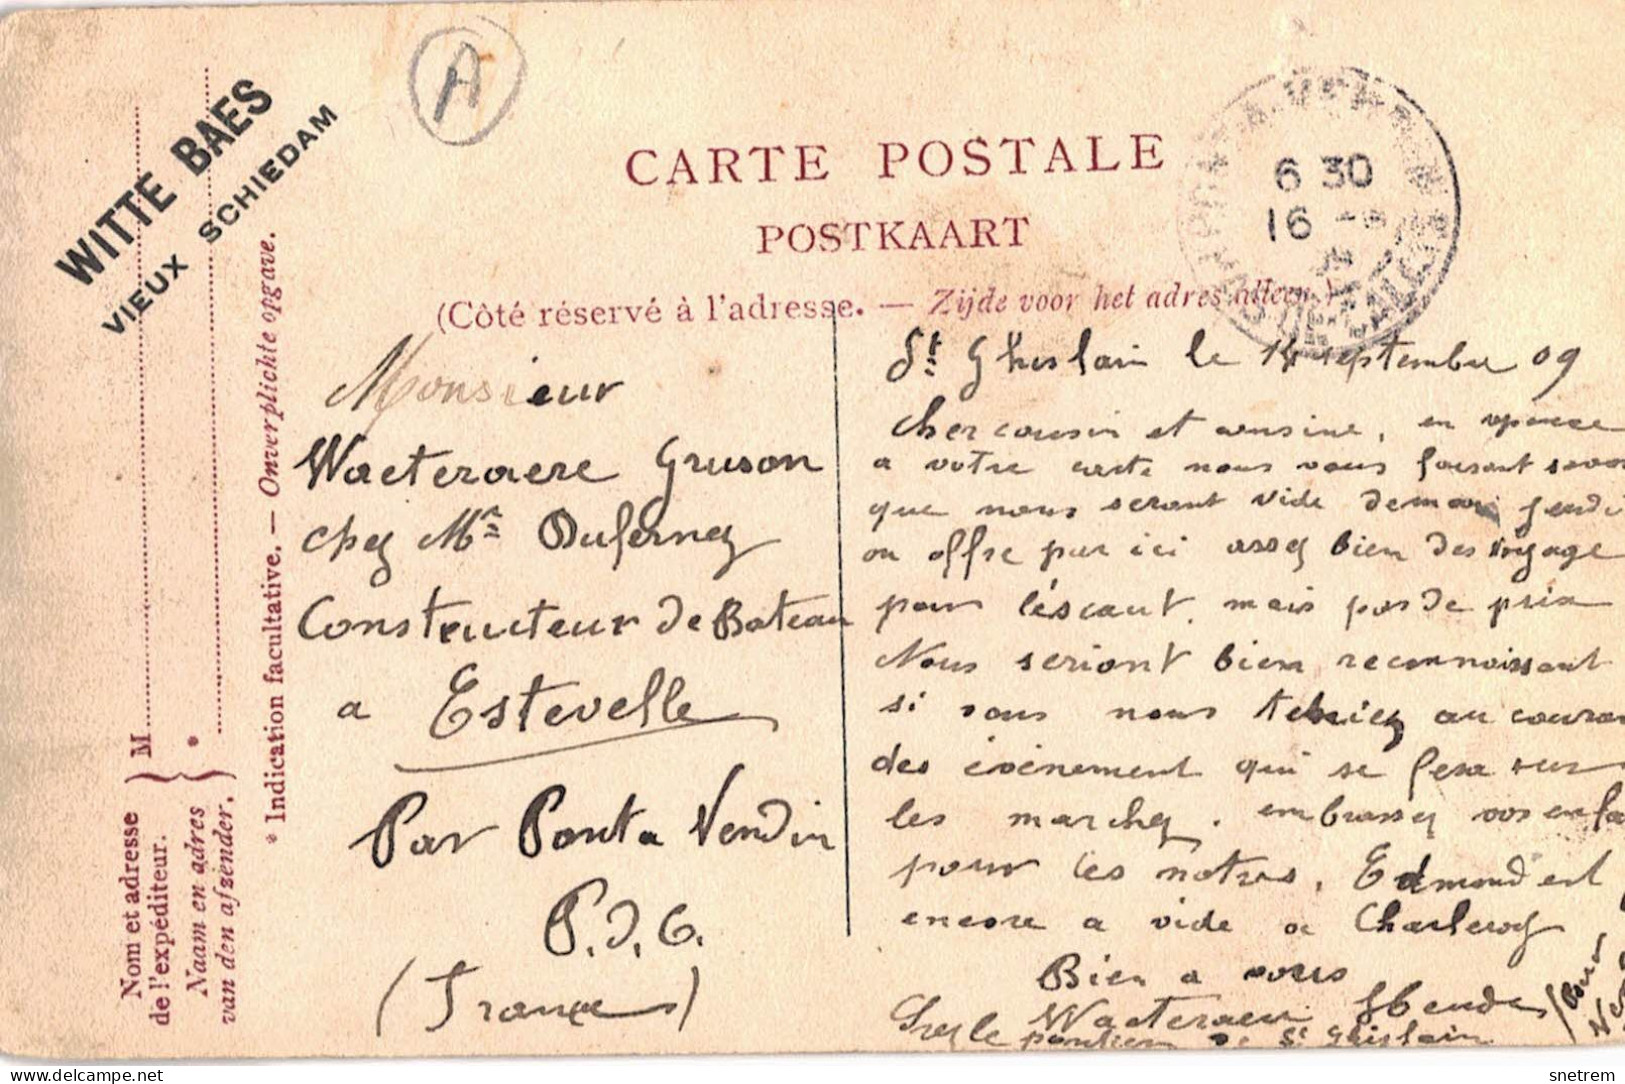 WITTE BAES
VIEUX SCHIEDAM
A
CARTE POSTALE
POSTKAART
(Côté réservé à l'adresse. — Zijde voor het adres alleen.)
6 30
16
PAS-DE-CALAIS
Nom et adresse
de l'expéditeur.
Naam en adres
van den afzender.
M
*
* Indication facultative. — Onverplichte opgave.
Monsieur
Waeteraere Gruson
chez Mr Duferney
Constructeur de Bateau
a Estevelle
Par Ponta Vendin
P.d.C.
(France)
St Ghislain le 14 septembre 09
Cher cousin et cousine, en reponse
a votre carte nous vous faisont savoir
que nous seront vide demain
on offre par ici assez bien des voyage
pour l'éscaut, mais pas de prix
Nous seriont bien reconnoissant
si vous nous teniez au couran
des événement qui se fera sur
les marchez. embrassez vos enfa
pour les notres. Edmond est
encore a vide a Charleroy
Bien a vous
Waeteraere
pontien St Ghislain
snetrem